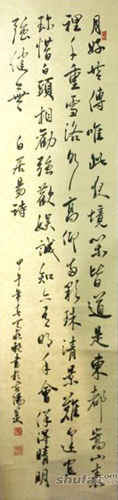 月好共傳唯此夜境閑皆道是東都嵩山表
裡千重雪洛水高低兩顆珠清景難逢宜
珍惜白頭相勸強歡娛誠知亦有明年會保得晴明
強健無 白居易詩
甲午年
shufa